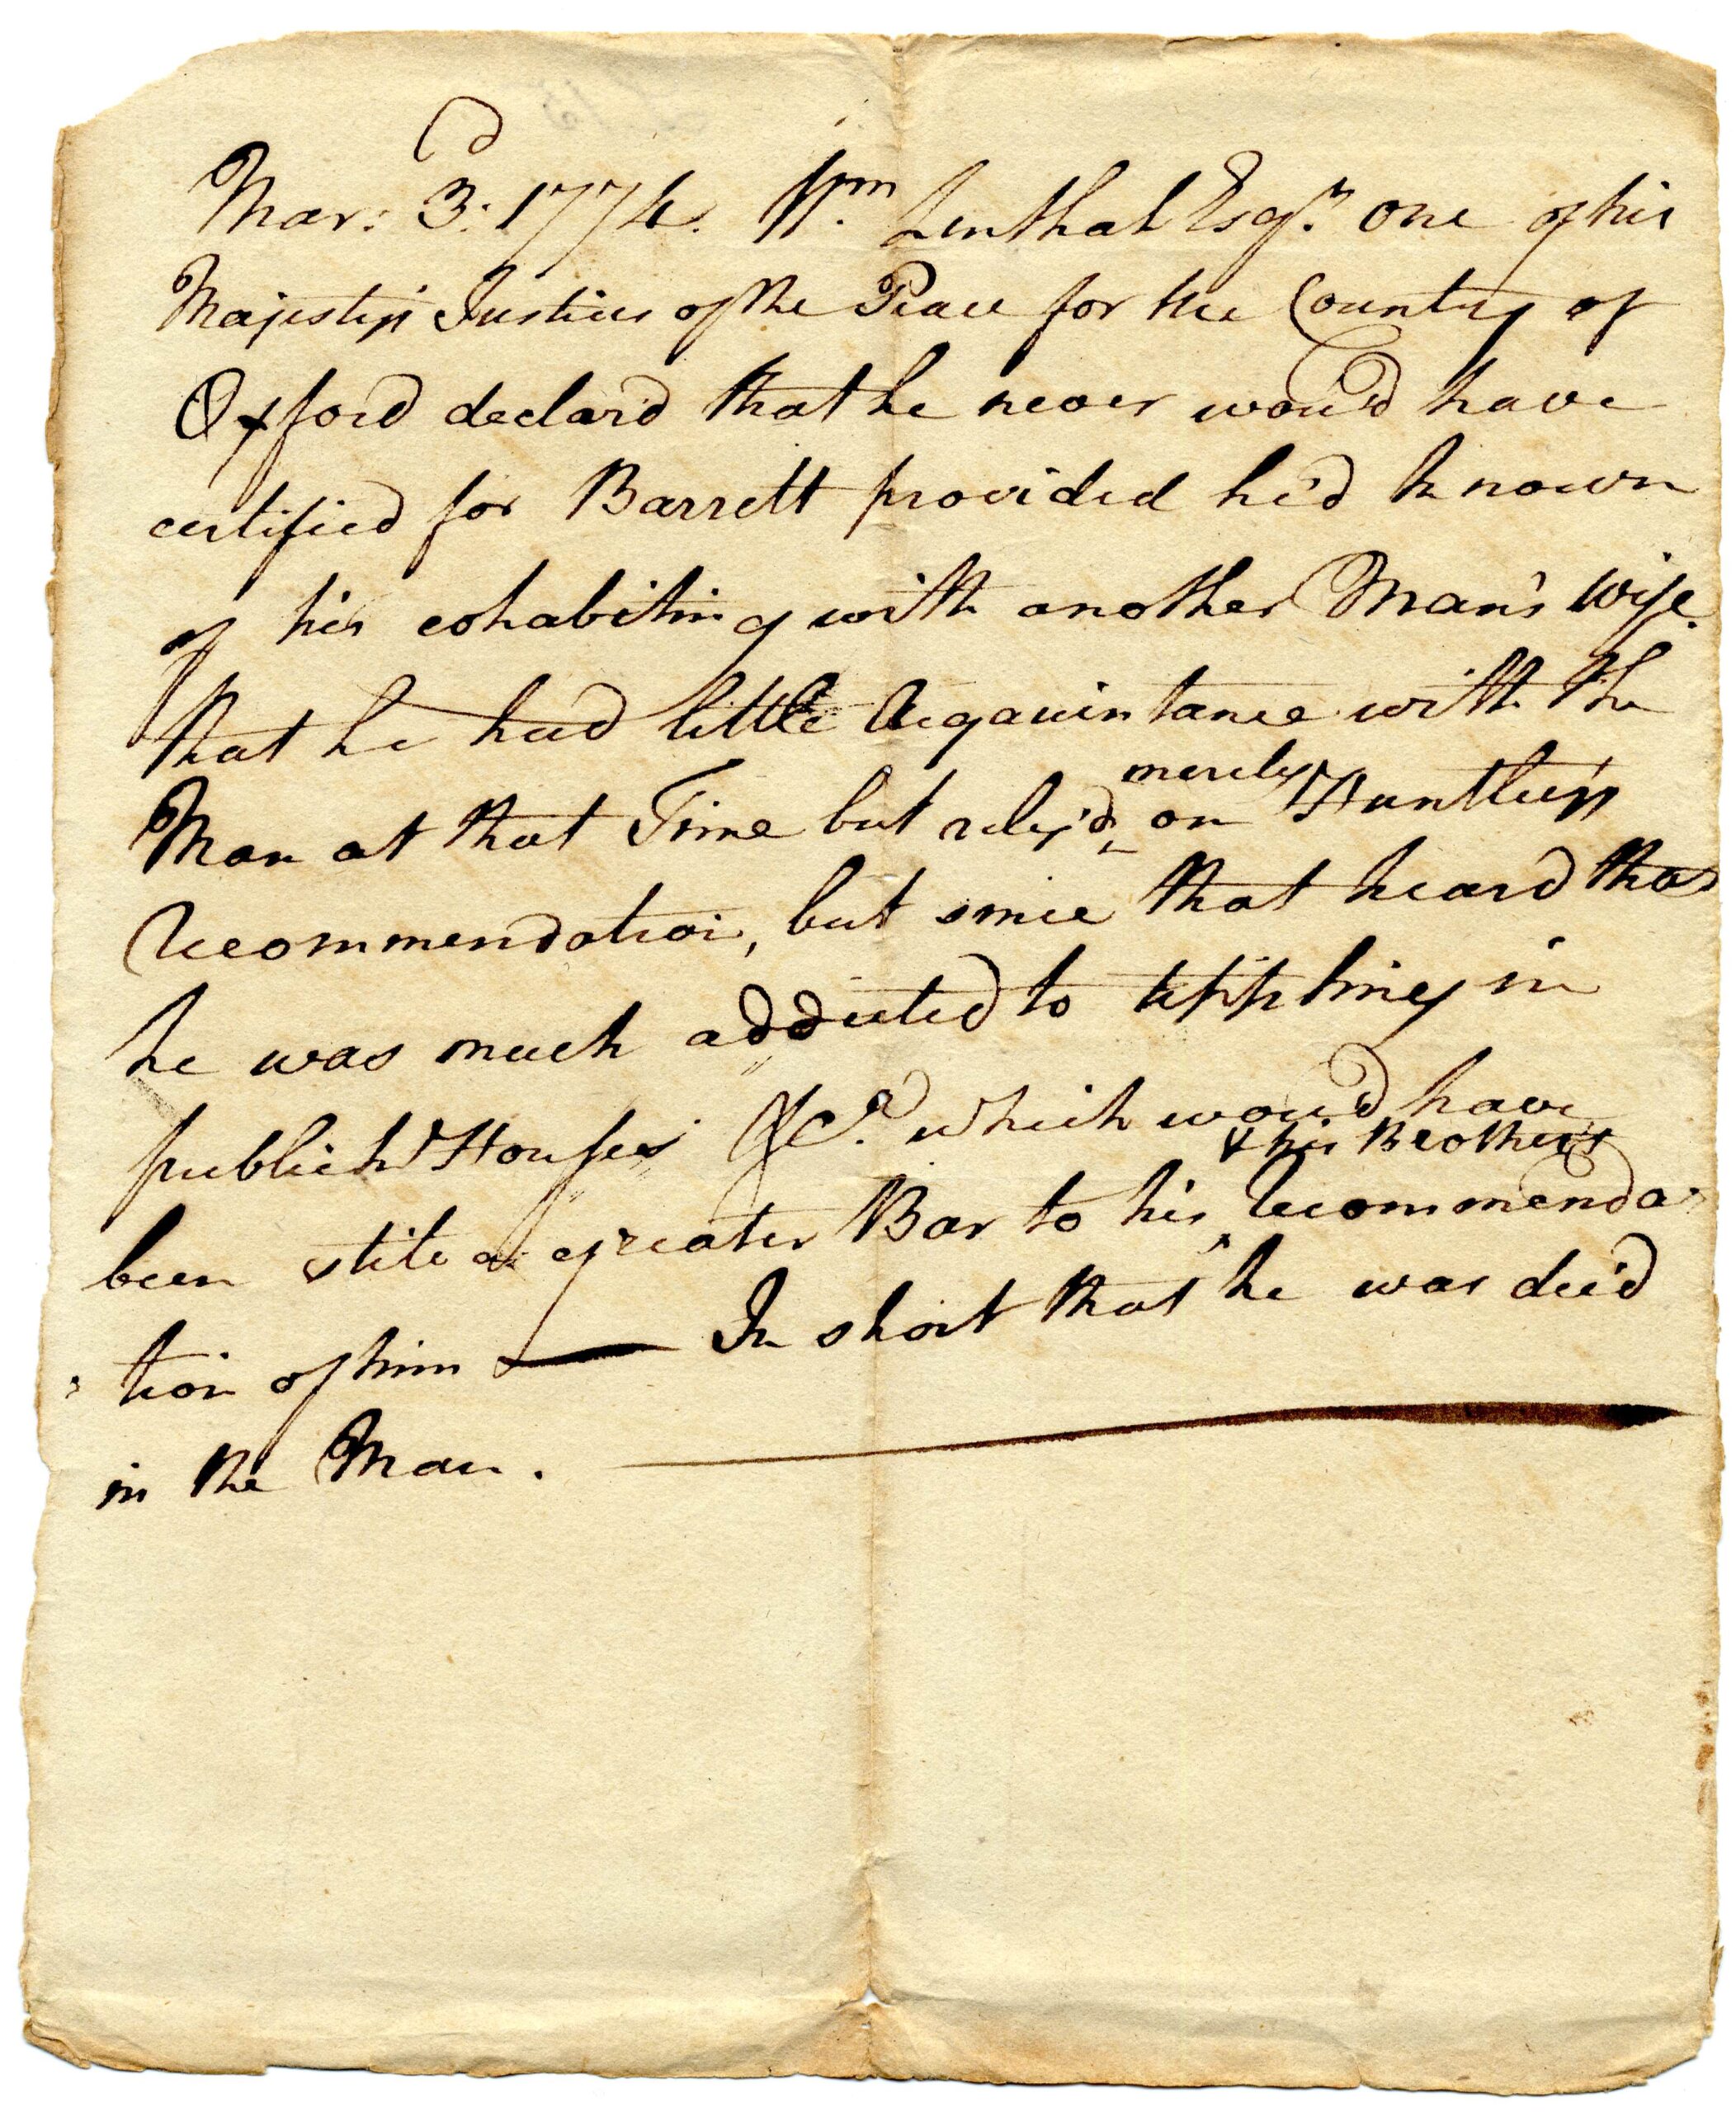 Mar: 3d: 1774. Wm. Lenthal Esqr. one of his
Majesty's Justices of the Peace for the County of
Oxford declar'd that he never wou'd have
certified for Barrett provided he'd known
of his cohabiting with another Man's Wife.
that he had little Acquaintance with the
Man at that Time but rely'd merely on Huntley's
Recommendation, but since that heard that
he was much addicted to tippling in
publick Houses &c.a which wou'd have
been still a greater Bar to his & his Brother's Recommenda=
=tion of him — In short that he was dec'd
in the Man.